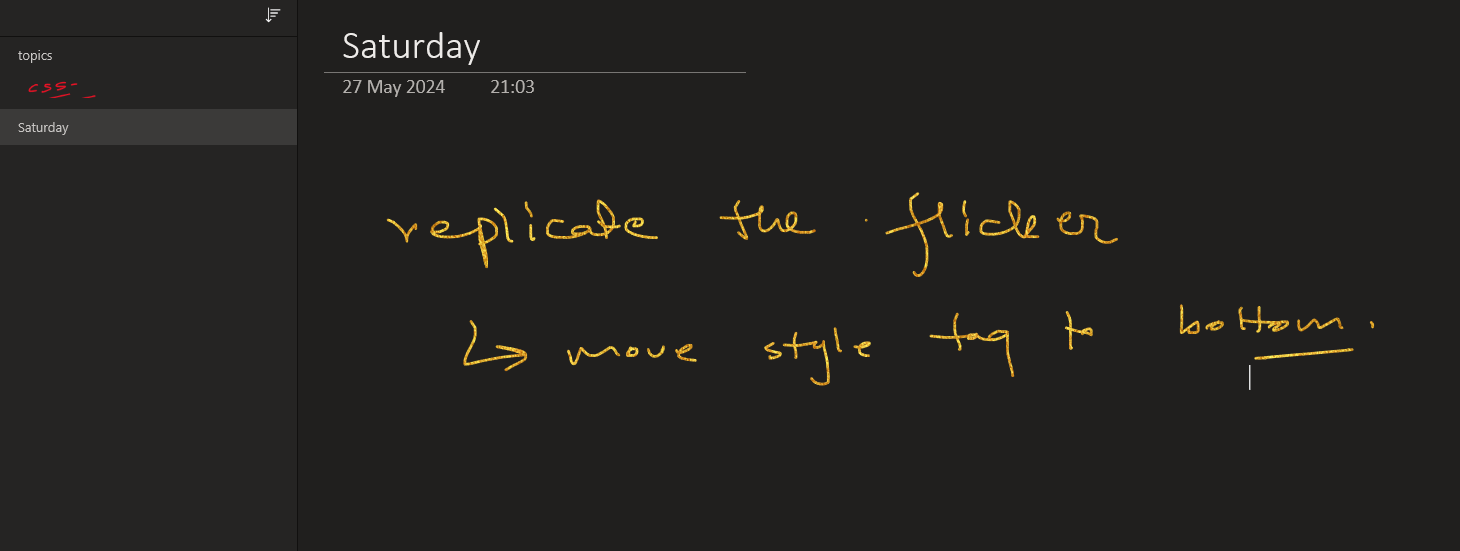 topics
css-
Saturday
Saturday
27 May 2024 21:03
replicate the flicker
move style tag to bottom.